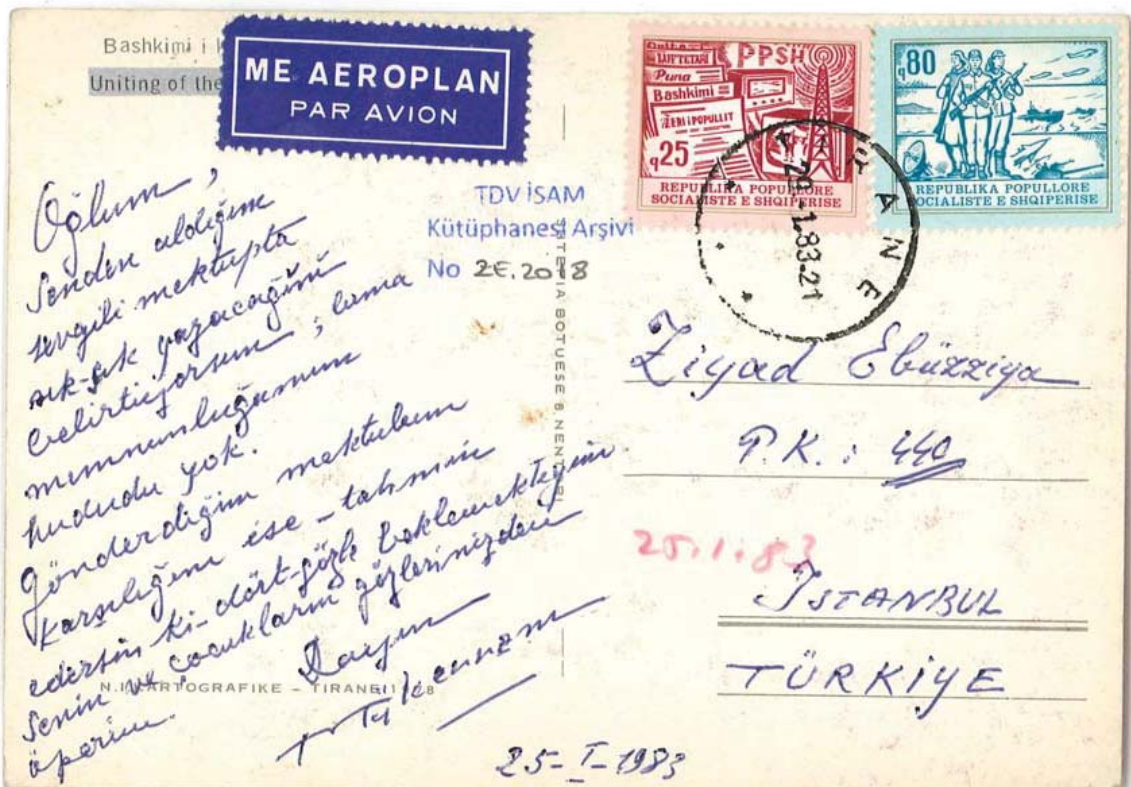 Bashkimi i
Uniting of the
ME AEROPLAN
PAR AVION
Gazeta
LUFTETARI
Puna
Bashkimi
ZERI I POPULLIT
PPSH
q25
REPUBLIKA POPULLORE
SOCIALISTE E SHQIPERISE
q80
REPUBLIKA POPULLORE
SOCIALISTE E SHQIPERISE
TIRANE
-1.83-21
TDV İSAM
Kütüphanesi Arşivi
No 2E.2018
Oğlum,
Senden aldığım
sevgili mektupta
sık-sık yazacağını
belirtiyorsun; ama
memnunluğumun
hududu yok.
Gönderdiğim mektubun
karşılığını ise – tahmin
edersin ki – dört-gözle beklemekteyim
Senin ve çocukların gözlerinizden
öperim.
Dayın
BOTUESE 8 NENTORI
N.I. KARTOGRAFIKE – TIRANE
25-I-1983
Ziyad Ebüzziya
P.K.: 440
25.1.83
İSTANBUL
TÜRKİYE